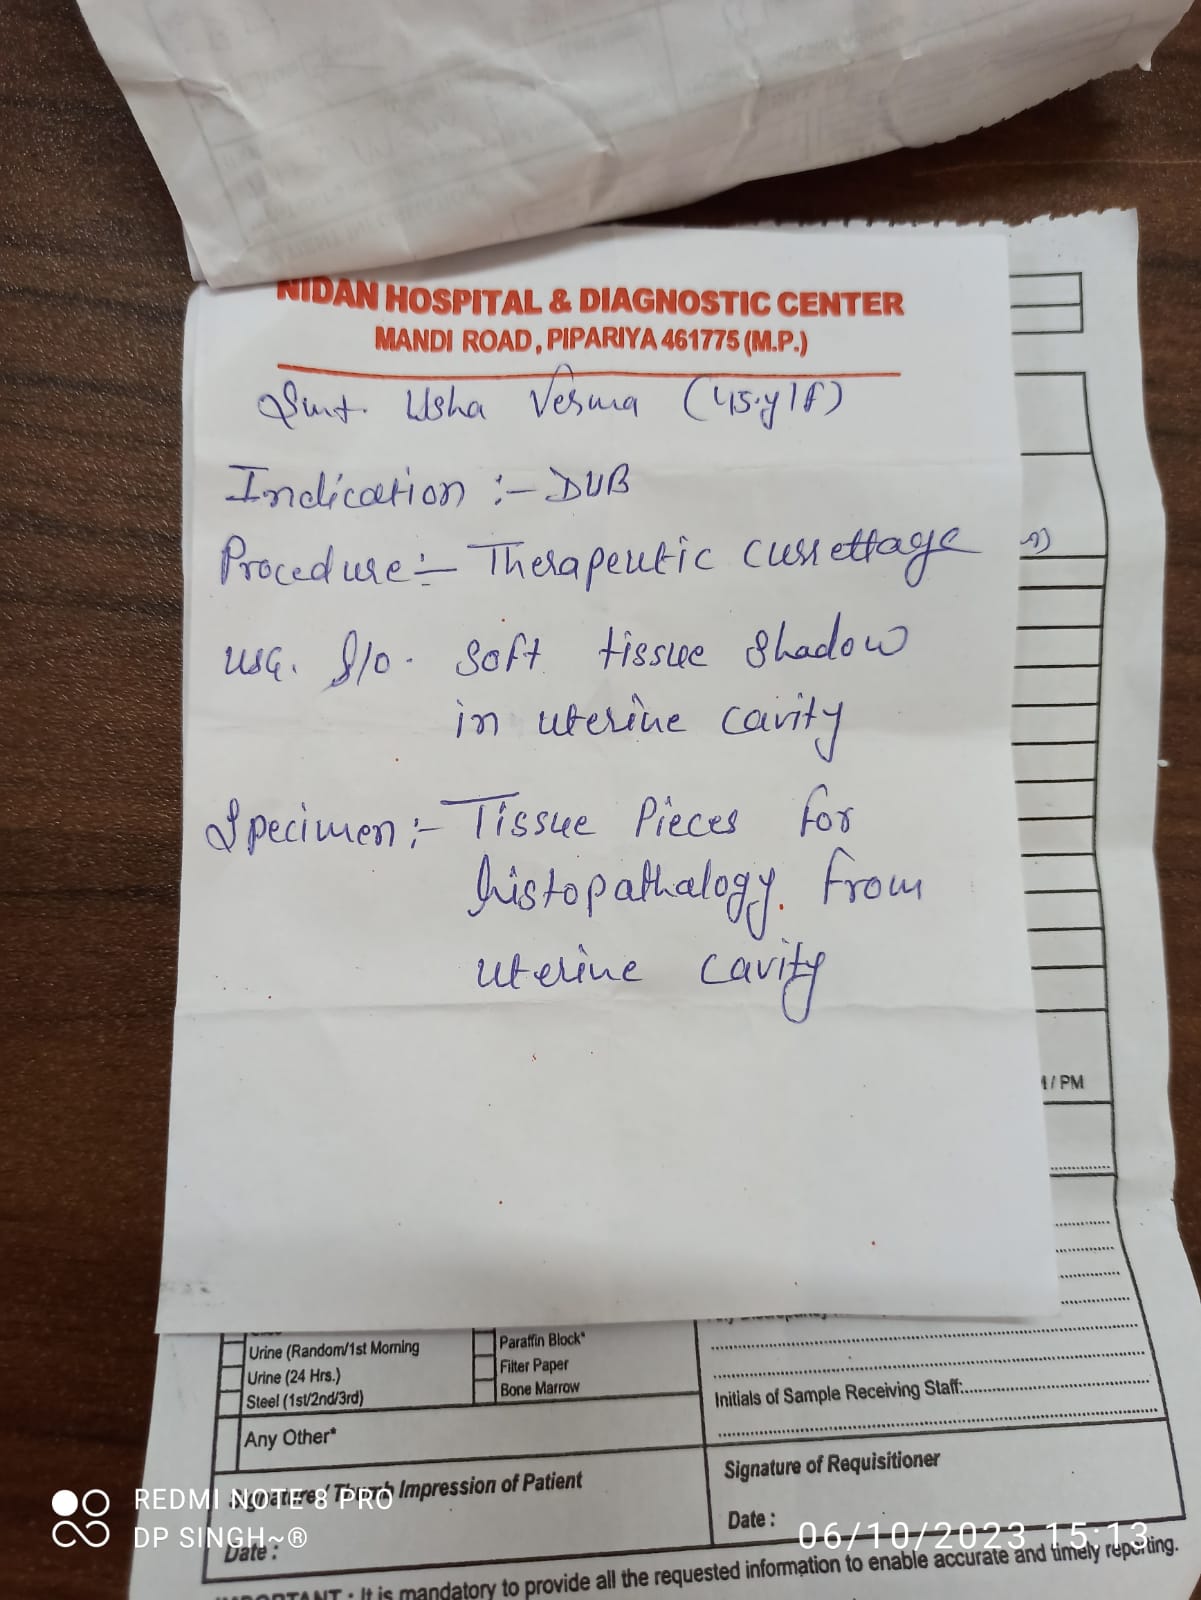 NIDAN HOSPITAL & DIAGNOSTIC CENTER
MANDI ROAD, PIPARIYA 461775 (M.P.)
Smt. Usha Verma (45.y/f)
Indication :- DUB
Procedure :- Therapeutic currettage
USG. S/O. Soft tissue shadow
in uterine cavity
Specimen :- Tissue Pieces for
histopathalogy. from
uterine cavity
/ PM
Urine (Random/1st Morning
Urine (24 Hrs.)
Steel (1st/2nd/3rd)
Any Other*
Paraffin Block*
Filter Paper
Bone Marrow
Initials of Sample Receiving Staff:
Signature / Thumb Impression of Patient
Date :
Signature of Requisitioner
Date :
IMPORTANT : It is mandatory to provide all the requested information to enable accurate and timely reporting.
REDMI NOTE 8 PRO
DP SINGH~®
06/10/2023 15:13